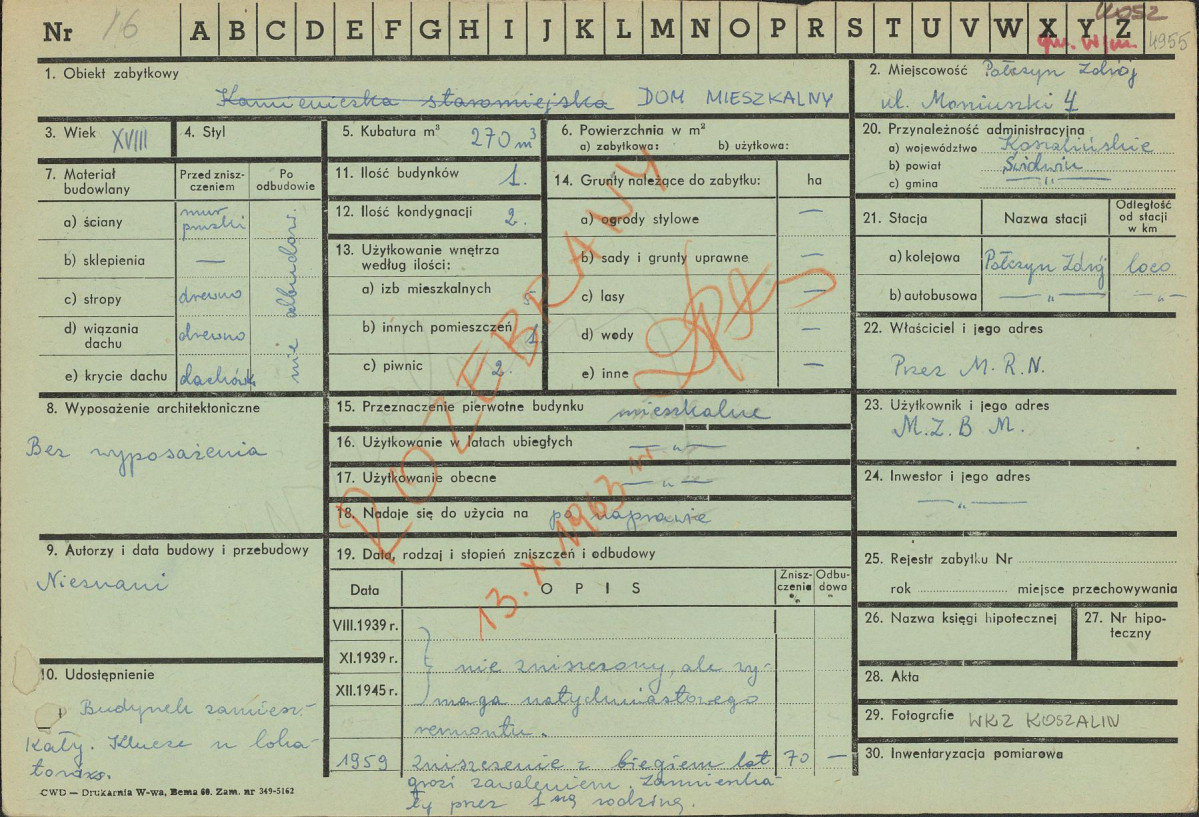 Nr 16 A B C D E F G H I J K L M N O P R S T U V W X Y Z
4955
1. Obiekt zabytkowy
Kamieniczka staromiejska DOM MIESZKALNY
2. Miejscowość Połczyn Zdrój
ul. Moniuszki 4
3. Wiek XVIII
4. Styl
5. Kubatura m³ 270 m³
6. Powierzchnia w m²
a) zabytkowa: b) użytkowa:
20. Przynależność administracyjna
a) województwo Koszalińskie
b) powiat Świdwin
c) gmina — „ —
7. Materiał budowlany
Przed zniszczeniem
Po odbudowie
a) ściany mur pruski
b) sklepienia —
c) stropy drewno
d) wiązania dachu drewno
e) krycie dachu dachówk
nie
11. Ilość budynków 1.
12. Ilość kondygnacji 2.
13. Użytkowanie wnętrza
według ilości:
a) izb mieszkalnych 5
b) innych pomieszczeń 1
c) piwnic 2.
14. Grunty należące do zabytku: ha
a) ogrody stylowe —
b) sady i grunty uprawne —
c) lasy —
d) wody —
e) inne —
21. Stacja Nazwa stacji Odległość od stacji w km
a) kolejowa Połczyn Zdrój loco
b) autobusowa — „ — — „ —
22. Właściciel i jego adres
Prez M. R. N.
8. Wyposażenie architektoniczne
Bez wyposażenia
15. Przeznaczenie pierwotne budynku mieszkalne
16. Użytkowanie w latach ubiegłych — „ —
17. Użytkowanie obecne — „ —
18. Nadaje się do użycia na po naprawie
23. Użytkownik i jego adres
M. Z. B M.
24. Inwestor i jego adres
— „ —
ROZEBRANY
13. X. 1963
9. Autorzy i data budowy i przebudowy
Nieznani
19. Data, rodzaj i stopień zniszczeń i odbudowy
Data OPIS Zniszczenia % Odbudowa
VIII.1939 r.
XI.1939 r.
XII.1945 r.
nie zniszczony, ale wy-
maga natychmiastowego
remontu.
1959 zniszczenie z biegiem lat 70 —
grozi zawaleniem. Zamieszka-
ły przez 1 ną rodzinę.
25. Rejestr zabytku Nr
rok miejsce przechowywania
26. Nazwa księgi hipotecznej
27. Nr hipoteczny
28. Akta
29. Fotografie WKZ KOSZALIN
30. Inwentaryzacja pomiarowa
10. Udostępnienie
Budynek zamiesz-
kały. Klucze u loka-
torów.
CWD — Drukarnia W-wa, Bema 60. Zam. nr 349-5162